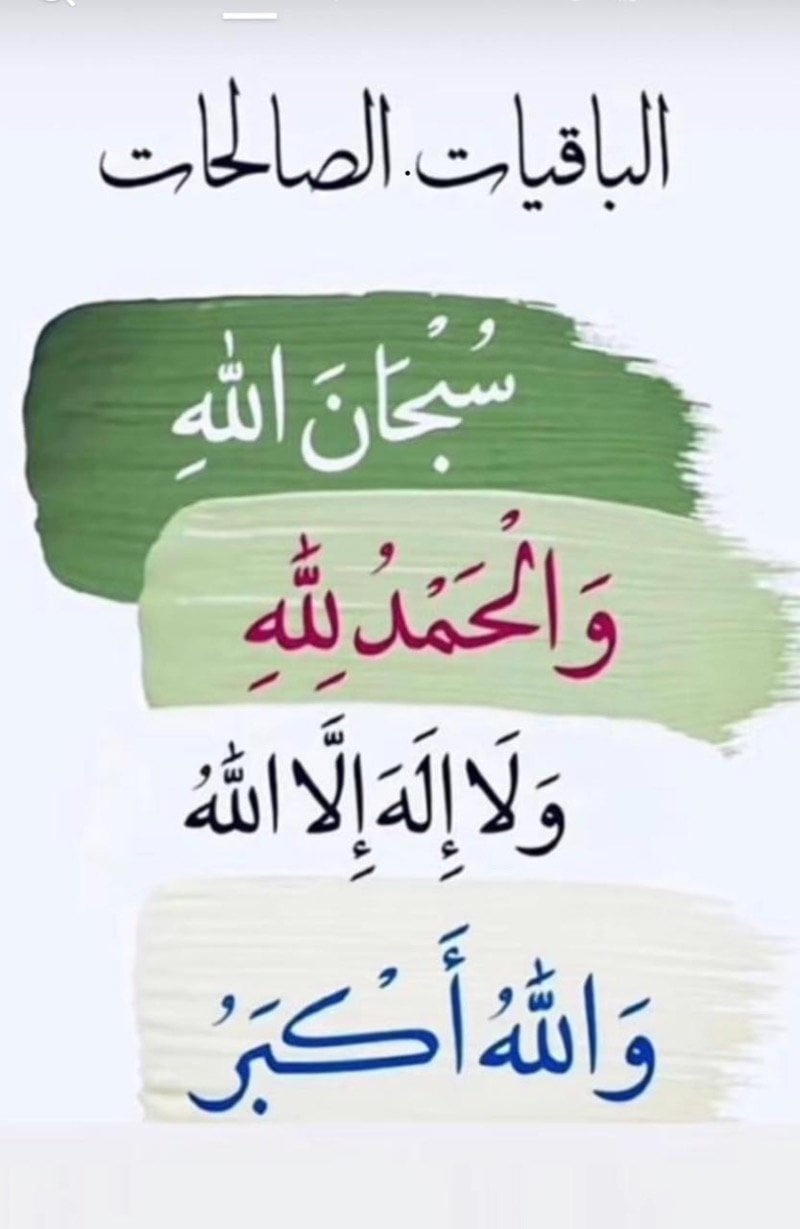 الباقيات الصالحات
سُبْحَانَ اللَّهِ
وَالْحَمْدُ لِلَّهِ
وَلَا إِلَهَ إِلَّا اللَّهُ
وَاللَّهُ أَكْبَرُ